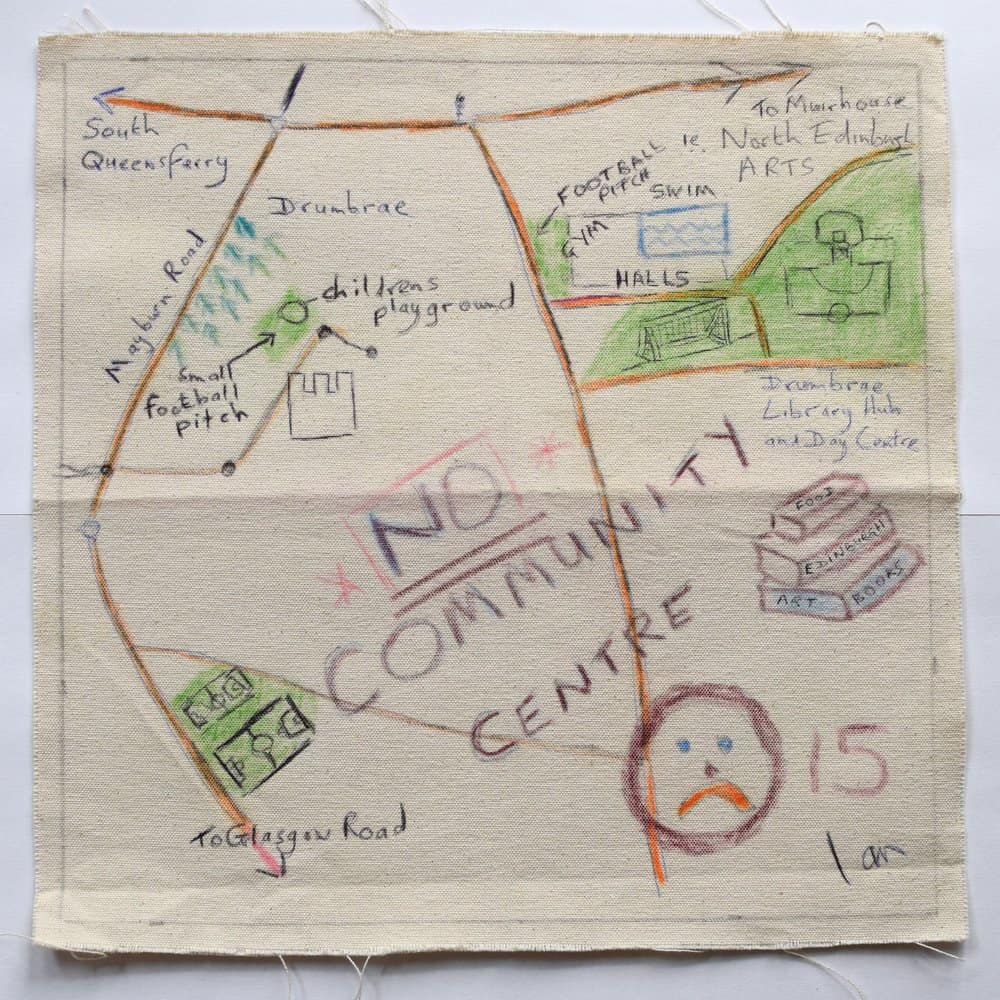 South
Queensferry
To Muirhouse
ie. North Edinburgh
ARTS
Drumbrae
FOOTBALL
PITCH
SWIM
GYM
HALLS
Mayburn Road
childrens
playground
small
football
pitch
Drumbrae
Library Hub
and Day Centre
NO
COMMUNITY
CENTRE
FOOD
EDINBURGH
ART BOOKS
15
To Glasgow Road
Ian